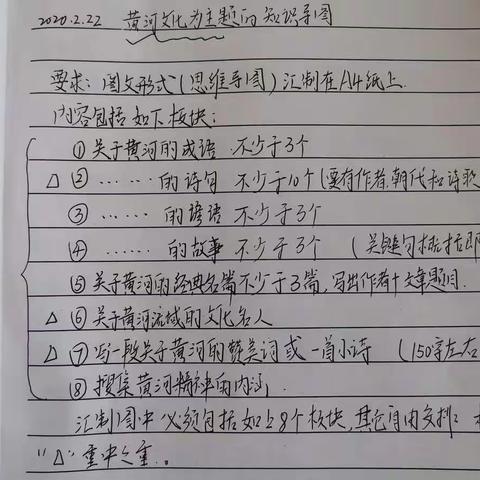 2020.2.22 黄河文化为主题的知识导图
要求：图文形式（思维导图）汇制在A4纸上.
内容包括如下板块：
①关于黄河的成语 不少于3个
△ ② …… 的诗句 不少于10个(要有作者.朝代和诗歌
③ …… 的谚语 不少于3个
④ …… 的故事 不少于3个 （关键句概括即
⑤关于黄河的经典名篇不少于3篇，写出作者+文章题目.
△ ⑥关于黄河流域的文化名人
△ ⑦写一段关于黄河的赞美词或一首小诗 （150字左右
⑧搜集黄河精神的内涵.
汇制图中必须包括如上8个板块，其它自由安排：
"△"重中之重。